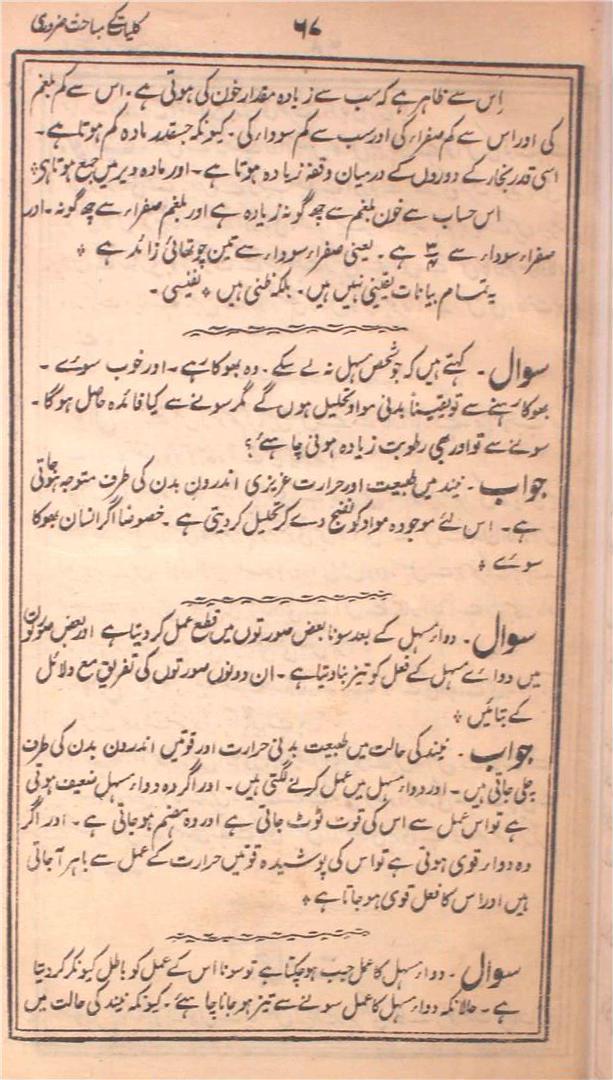 ۶۷
کلیات کے مباحث ضروری
اِس سے ظاہر ہے کہ سب سے زیادہ مقدار خون کی ہوتی ہے۔ اس سے کم بلغم
کی اور اس سے کم صفراء کی اور سب سے کم سوداء کی۔ کیونکہ جسقدر مادہ کم ہوتا ہے۔
اسی قدر بخار کے دوروں کے درمیان وقفہ زیادہ ہوتا ہے۔ اور مادہ دیر میں جمع ہوتا ہی*
اس حساب سے خون بلغم سے چھ گونہ زیادہ ہے اور بلغم صفراء سے چھ گونہ۔ اور
صفراء سوداء سے ۳/۴ ہے۔ یعنی صفراء سوداء سے تین چوتھائی زائد ہے *
یہ تمام بیانات یقینی نہیں ہیں۔ بلکہ ظنی ہیں * نفیسی۔
سوال۔ کہتے ہیں کہ جو شخص مسہل نہ لے سکے۔ وہ بھوکا رہے۔ اور خوب سوئے۔
بھوکا رہنے سے تو یقیناً بدنی مواد تحلیل ہوں گے مگر سونے سے کیا فائدہ حاصل ہوگا۔
سونے سے تو اور بھی رطوبت زیادہ ہونی چاہئے؟
جواب۔ نیند میں طبیعت اور حرارت غریزی اندرون بدن کی طرف متوجہ ہو جاتی
ہے۔ اس لئے موجودہ مواد کو نضج دے کر تحلیل کر دیتی ہے۔ خصوصاً اگر انسان بھوکا
سوئے *
سوال۔ دواء مسہل کے بعد سونا بعض صورتوں میں قطع عمل کر دیتا ہے اور بعض صورتوں
میں دوائے مسہل کے فعل کو تیز بنا دیتا ہے۔ ان دونوں صورتوں کی تفریق مع دلائل
کے بتائیں *
جواب۔ نیند کی حالت میں طبیعت بدنی حرارت اور قوتیں اندرون بدن کی طرف
چلی جاتی ہیں۔ اور دواء مسہل میں عمل کرنے لگتی ہیں۔ اور اگر وہ دواء مسہل ضعیف ہوتی
ہے تو اس عمل سے اس کی قوت ٹوٹ جاتی ہے اور وہ ہضم ہو جاتی ہے۔ اور اگر
وہ دواء قوی ہوتی ہے تو اس کی پوشیدہ قوتیں حرارت کے عمل سے باہر آجاتی
ہیں اور اس کا فعل قوی ہو جاتا ہے *
سوال۔ دواء مسہل کا عمل جب ہو چکتا ہے تو سونا اس کے عمل کو باطل کیونکر کر دیتا
ہے۔ حالانکہ دواء مسہل کا عمل سونے سے تیز ہو جانا چاہئے۔ کیونکہ نیند کی حالت میں